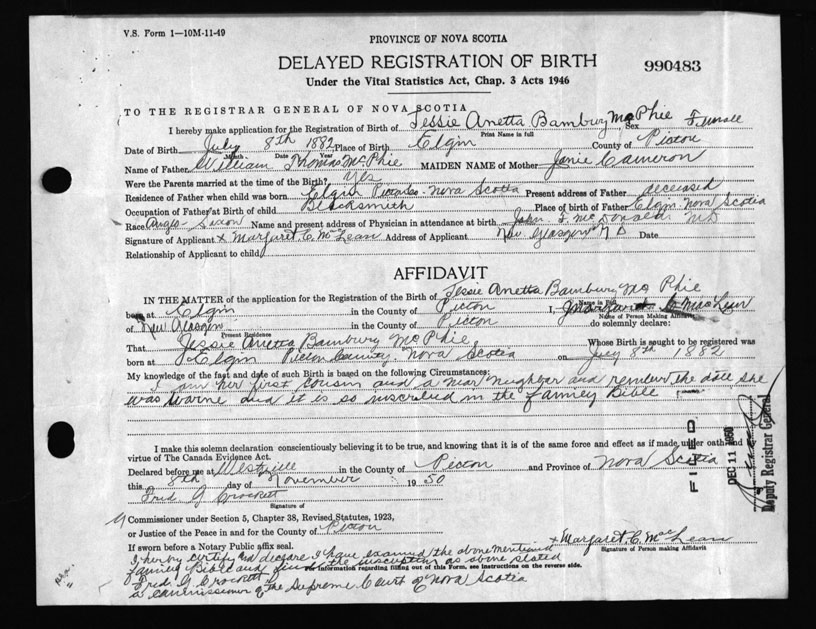 V.S. Form 1—10M-11-49
PROVINCE OF NOVA SCOTIA
DELAYED REGISTRATION OF BIRTH
990483
Under the Vital Statistics Act, Chap. 3 Acts 1946
TO THE REGISTRAR GENERAL OF NOVA SCOTIA
I hereby make application for the Registration of Birth of Jessie Anetta Bambury McPhie Sex Female
Print Name in full
Date of Birth July 8th 1882 Place of Birth Elgin County of Pictou
Month Date Year
Name of Father William Thomas McPhie MAIDEN NAME of Mother Janie Cameron
Were the Parents married at the time of the Birth? Yes
Residence of Father when child was born Elgin Pictou Co - Nova Scotia Present address of Father deceased
Occupation of Father at Birth of child Blacksmith Place of birth of Father Elgin - Nova Scotia
Race Anglo Saxon Name and present address of Physician in attendance at birth John F. McDonald MD
Signature of Applicant x Margaret C. McLean Address of Applicant New Glasgow Date
Relationship of Applicant to child
AFFIDAVIT
IN THE MATTER of the application for the Registration of the Birth of Jessie Anetta Bambury McPhie
Name in Full
born at Elgin in the County of Pictou I, MacLean
Present Residence
Name of Person Making Affidavit
of New Glasgow in the County of Pictou do solemnly declare:
That Jessie Anetta Bambury McPhie Whose Birth is sought to be registered was
born at Elgin Pictou County, Nova Scotia on July 8th 1882
My knowledge of the fact and date of such Birth is based on the following Circumstances:
I am her first cousin and a near neighbor and remember the date she
was borne and it is so inscribed in the Family Bible
I make this solemn declaration conscientiously believing it to be true, and knowing that it is of the same force and effect as if made under oath and by
virtue of The Canada Evidence Act.
Declared before me at Westville in the County of Pictou and Province of Nova Scotia
this 8th day of November 1950
Fred G Crockett
Signature of
A Commissioner under Section 5, Chapter 38, Revised Statutes, 1923,
or Justice of the Peace in and for the County of Pictou
If sworn before a Notary Public affix seal.
x Margaret C. MacLean
Signature of Person making Affidavit
I herby certify and declare I have examined the above mentioned
Family Bible and find the inscription as above stated
For information regarding filling out of this Form, see instructions on the reverse side.
Fred G Crockett
a commissioner of the Supreme Court of Nova Scotia
FILED
DEC 11 1950
Deputy Registrar General